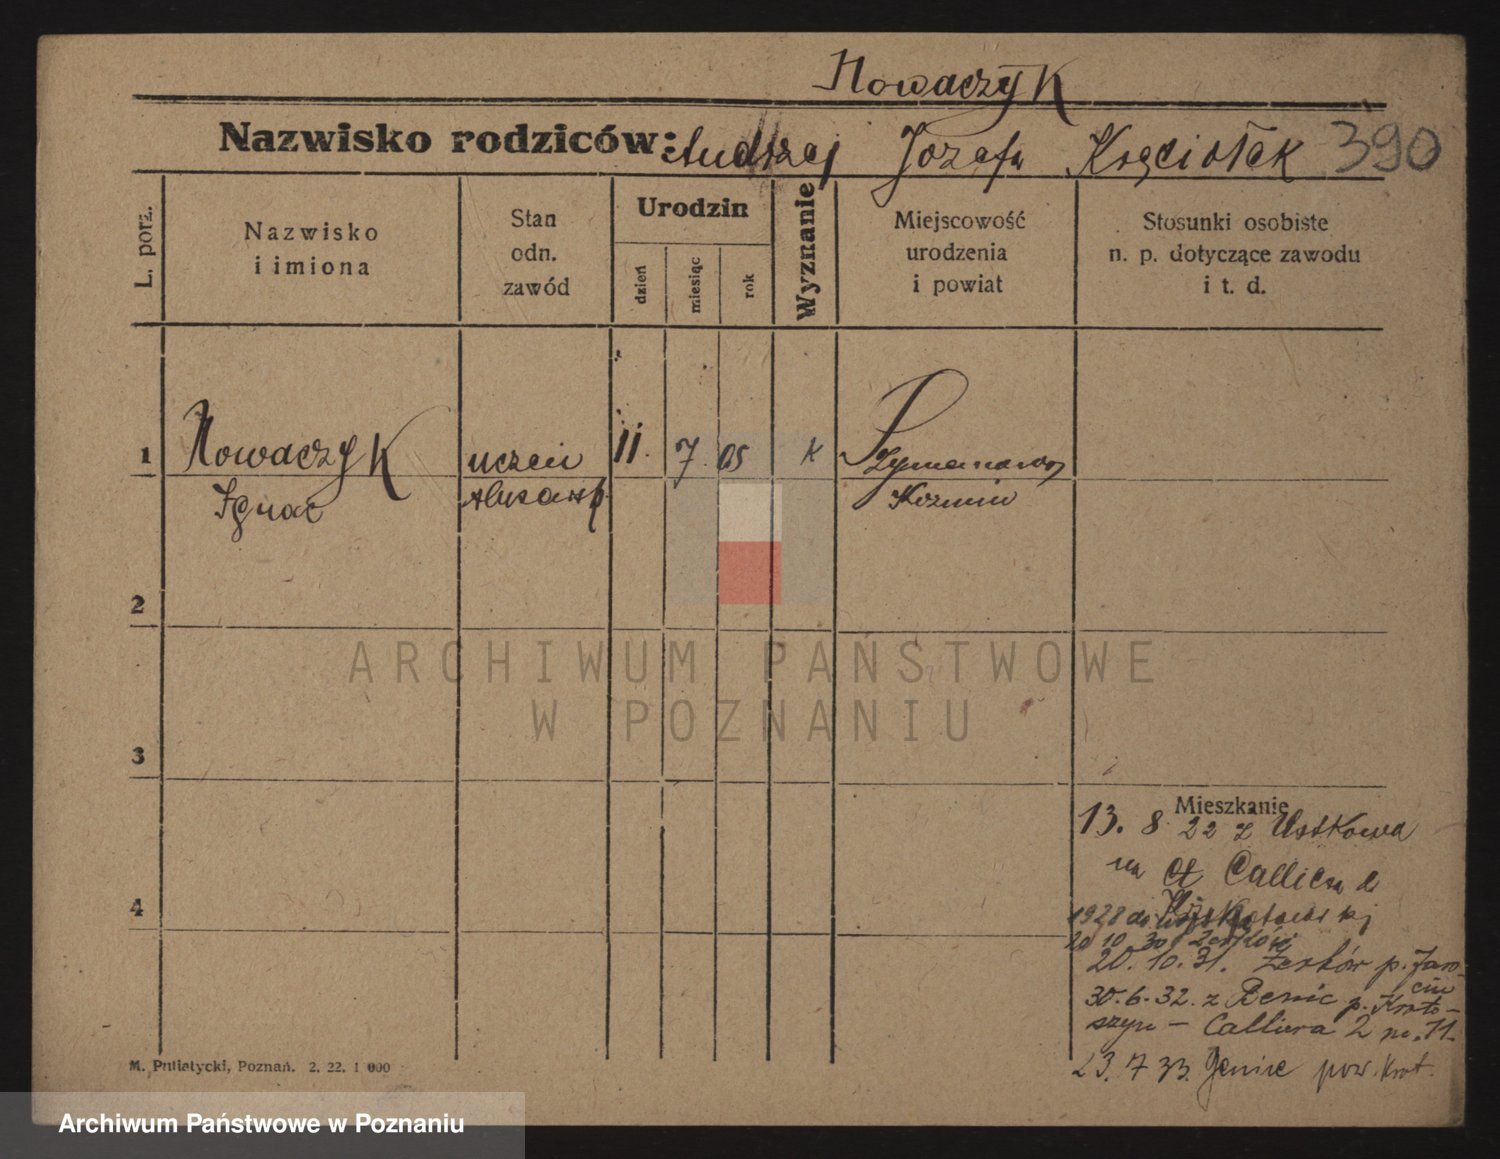 Nowaczyk
Nazwisko rodziców: Andrzej Józefa Kręciołek 390
L. porz.
Nazwisko
i imiona
Stan
odn.
zawód
Urodzin
dzień
miesiąc
rok
Wyznanie
Miejscowość
urodzenia
i powiat
Stosunki osobiste
n. p. dotyczące zawodu
i t. d.
1 Nowaczyk uczeń 11. 7. 05 K Szymanowo
Ignac ślusarsk Koźmin
2
ARCHIWUM PAŃSTWOWE
W POZNANIU
3
Mieszkanie
13. 8 22 z Ustkowa
na Calliera
4
1928 do
20 10 30 Żerków
20. 10. 31. Żerków p. Jaro-
cin
30. 6. 32. z Benic p. Kroto-
szyn - Calliera 2 m. 11.
23. 7 33. Benice pow. Krot.
M. Putiatycki, Poznań. 2. 22. 1 000
Archiwum Państwowe w Poznaniu